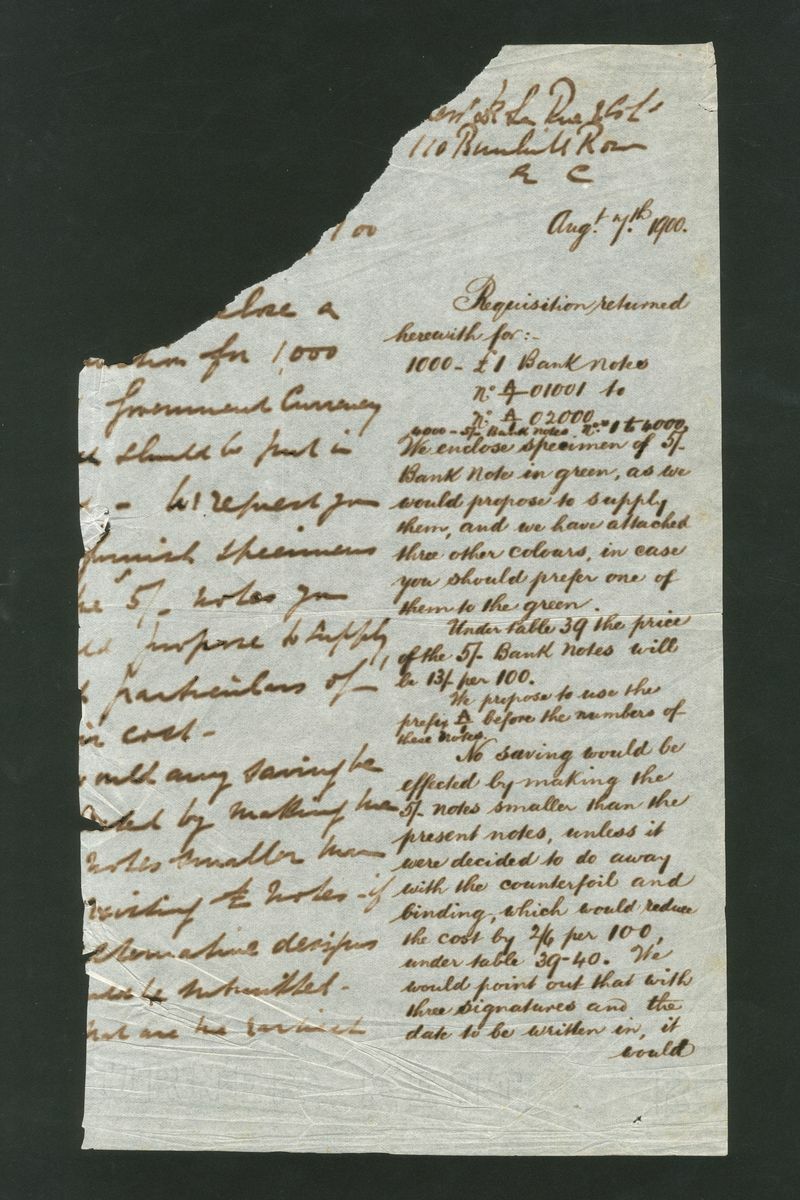 De La Rue & Co Ld
110 Bunhill Row
E C
Augt. 7th. 1900.
00
close a
for 1,000
Government Currency
should be put in
- & request you
furnish specimens
he 5/- notes you
ld propose to supply
particulars of
ir cost -
ould any saving be
cted by making the
notes smaller than
existing £ notes - if
alternative designs
be submitted -
hat are the
Requisition returned
herewith for:-
1000 - £1 Bank notes
No. A/1 01001 to
No. A/1 02000
4000 - 5/- Bank notes Nos. 1 to 4000
We enclose specimen of 5/-
Bank Note in green, as we
would propose to supply
them, and we have attached
three other colours, in case
you should prefer one of
them to the green.
Under table 39 the price
of the 5/- Bank notes will
be 13/- per 100.
We propose to use the
prefix A/1 before the numbers of
these notes.
No saving would be
effected by making the
5/- notes smaller than the
present notes, unless it
were decided to do away
with the counterfoil and
binding, which would reduce
the cost by 2/6 per 100,
under table 39-40. We
would point out that with
three signatures and the
date to be written in, it
would